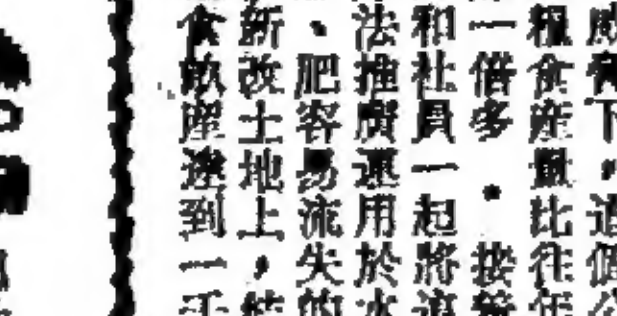 脅下，這個公
糧食產量比往年
一倍多。
和社員一起將這
法推廣運用於水
、肥容易流失的
新改土地上，
食畝產達到一千